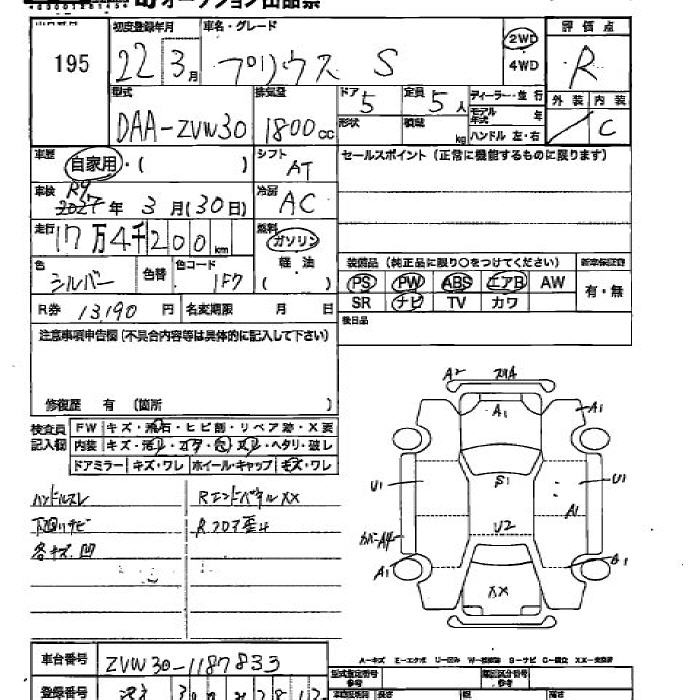 オークション出品票
195
初度登録年月 車名・グレード 評価点
22年 3月 プリウス S 2WD 4WD R
型式 排気量 ドア 定員 ディーラー・並行 外装 内装
DAA-ZVW30 1800cc 5 5人 モデル年式 年 / C
形状 積載 kg ハンドル 左・右
車歴 自家用・( ) シフト AT セールスポイント (正常に機能するものに限ります)
車検 R9 2027年 3月(30日) 冷房 AC
走行 17万4千200km 燃料 ガソリン 軽油 ( )
装備品 (純正品に限り○をつけてください) 新車保証書
色 シルバー 色替 色コード 1F7
PS PW ABS エアB AW 有・無
SR ナビ TV カワ
R券 13,190円 名変期限 月 日
後日品
注意事項申告欄 (不具合内容等は具体的に記入して下さい)
修復歴 有 (箇所 )
検査員記入欄 FW キズ・飛石・ヒビ割・リペア跡・X要
内装 キズ・汚レ・コゲ・穴・スレ・ヘタリ・破レ
ドアミラー キズ・ワレ ホイール・キャップ キズ・ワレ
ハンドルスレ RエンドパネルXX
下廻りサビ Rフロア歪ミ
各キズ、凹
A2
A1 A1
U1 S1 U1
A1
U2
カバーA4
A1 B1
XX
A-キズ E-エクボ U-凹み W-補修跡 S-サビ C-腐食 XX-交換済
車台番号 ZVW30-1187833
型式指定番号 参考 類別区分番号 参考
登録番号